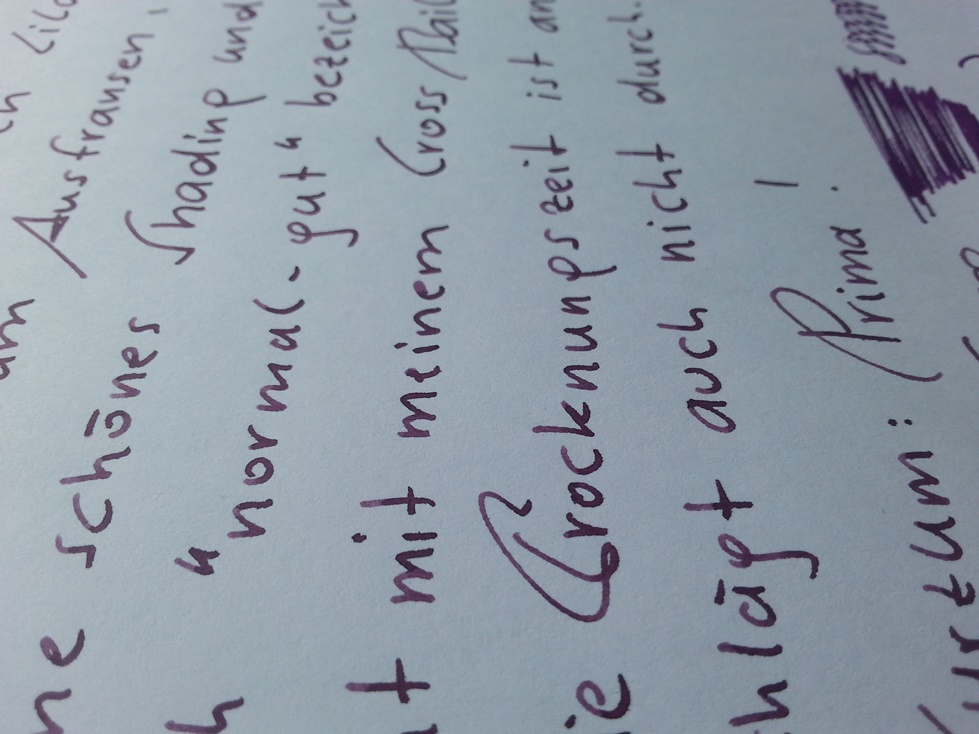 Ausfransen,
schönes Shading und
"normal-gut" bezeich
mit meinem Cross
ie Trocknungszeit ist an
hlägt auch nicht durch.
urztum: Prima!